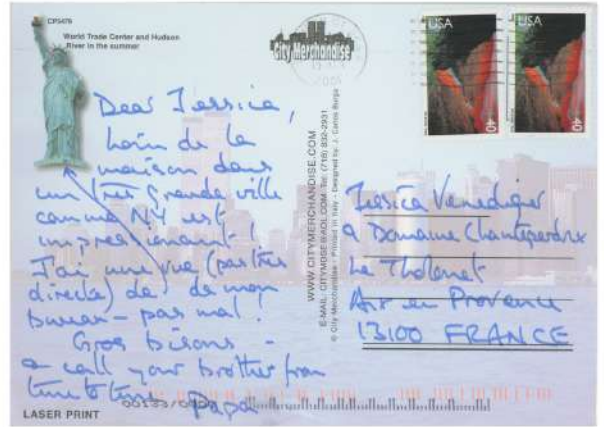 CP3476
World Trade Center and Hudson
River in the summer
City Merchandise
USA
USA
40
40
Dear Jessica,
Loin de la
maison dans
un très grande ville
comme NY est
impressionant!
J'ai une vue (pas très
directe) de, de mon
bureau - pas mal!
Gros bisous -
& call your brother from
time to time Papa
WWW.CITYMERCHANDISE.COM
E-MAIL: CITYMDSE@AOL.COM • Tel: (718) 832-2931
© City Merchandise • Printed in Italy • Designed by: J. Carlos Burga
Jessica Venediger
9 Domaine Chanteperdrix
Le Tholonet
Aix en Provence
13100 FRANCE
LASER PRINT